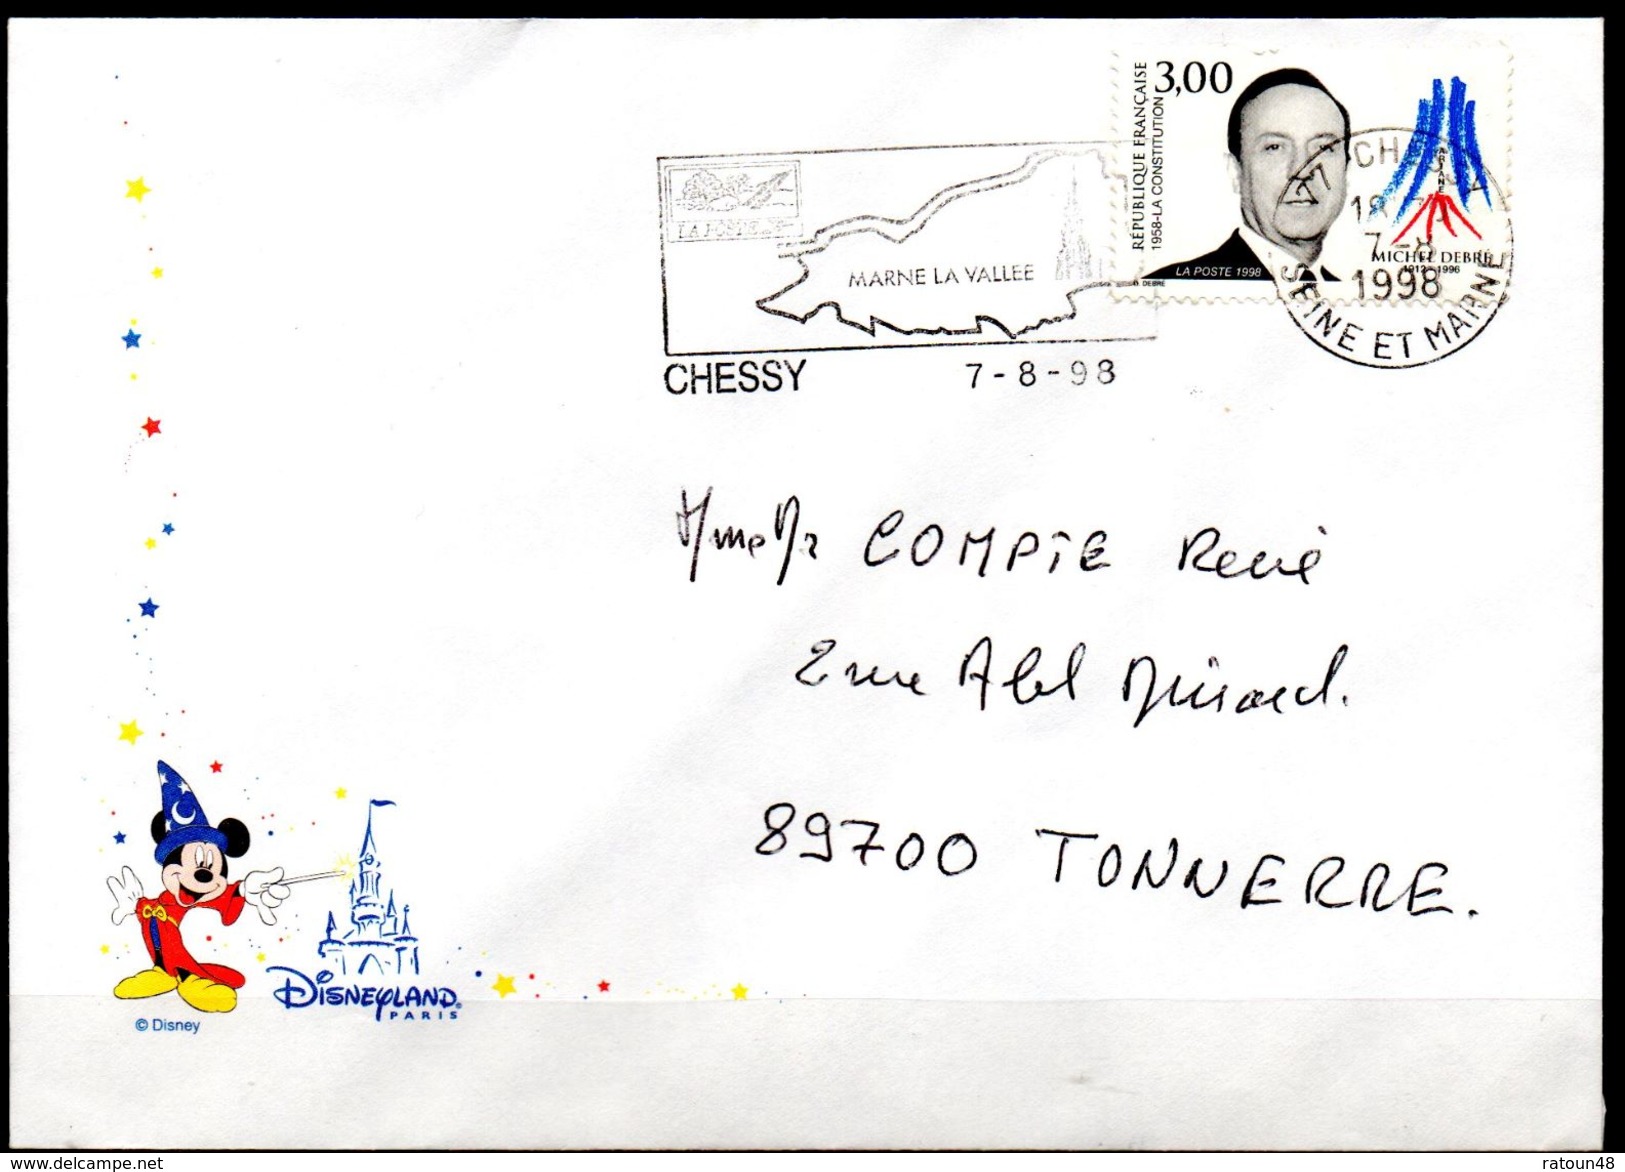 RÉPUBLIQUE FRANÇAISE
1958-LA CONSTITUTION
3,00
MICHEL DEBRÉ
1912 1996
LA POSTE 1998
D. DEBRÉ
77 CHESSY
7-8
1998
SEINE ET MARNE
LA POSTE
MARNE LA VALLEE
CHESSY 7-8-98
Mme Mr COMPTE René
2 rue Abel Minard.
89700 TONNERRE.
DISNEYLAND
PARIS
© Disney
delcampe.net
ratoun48